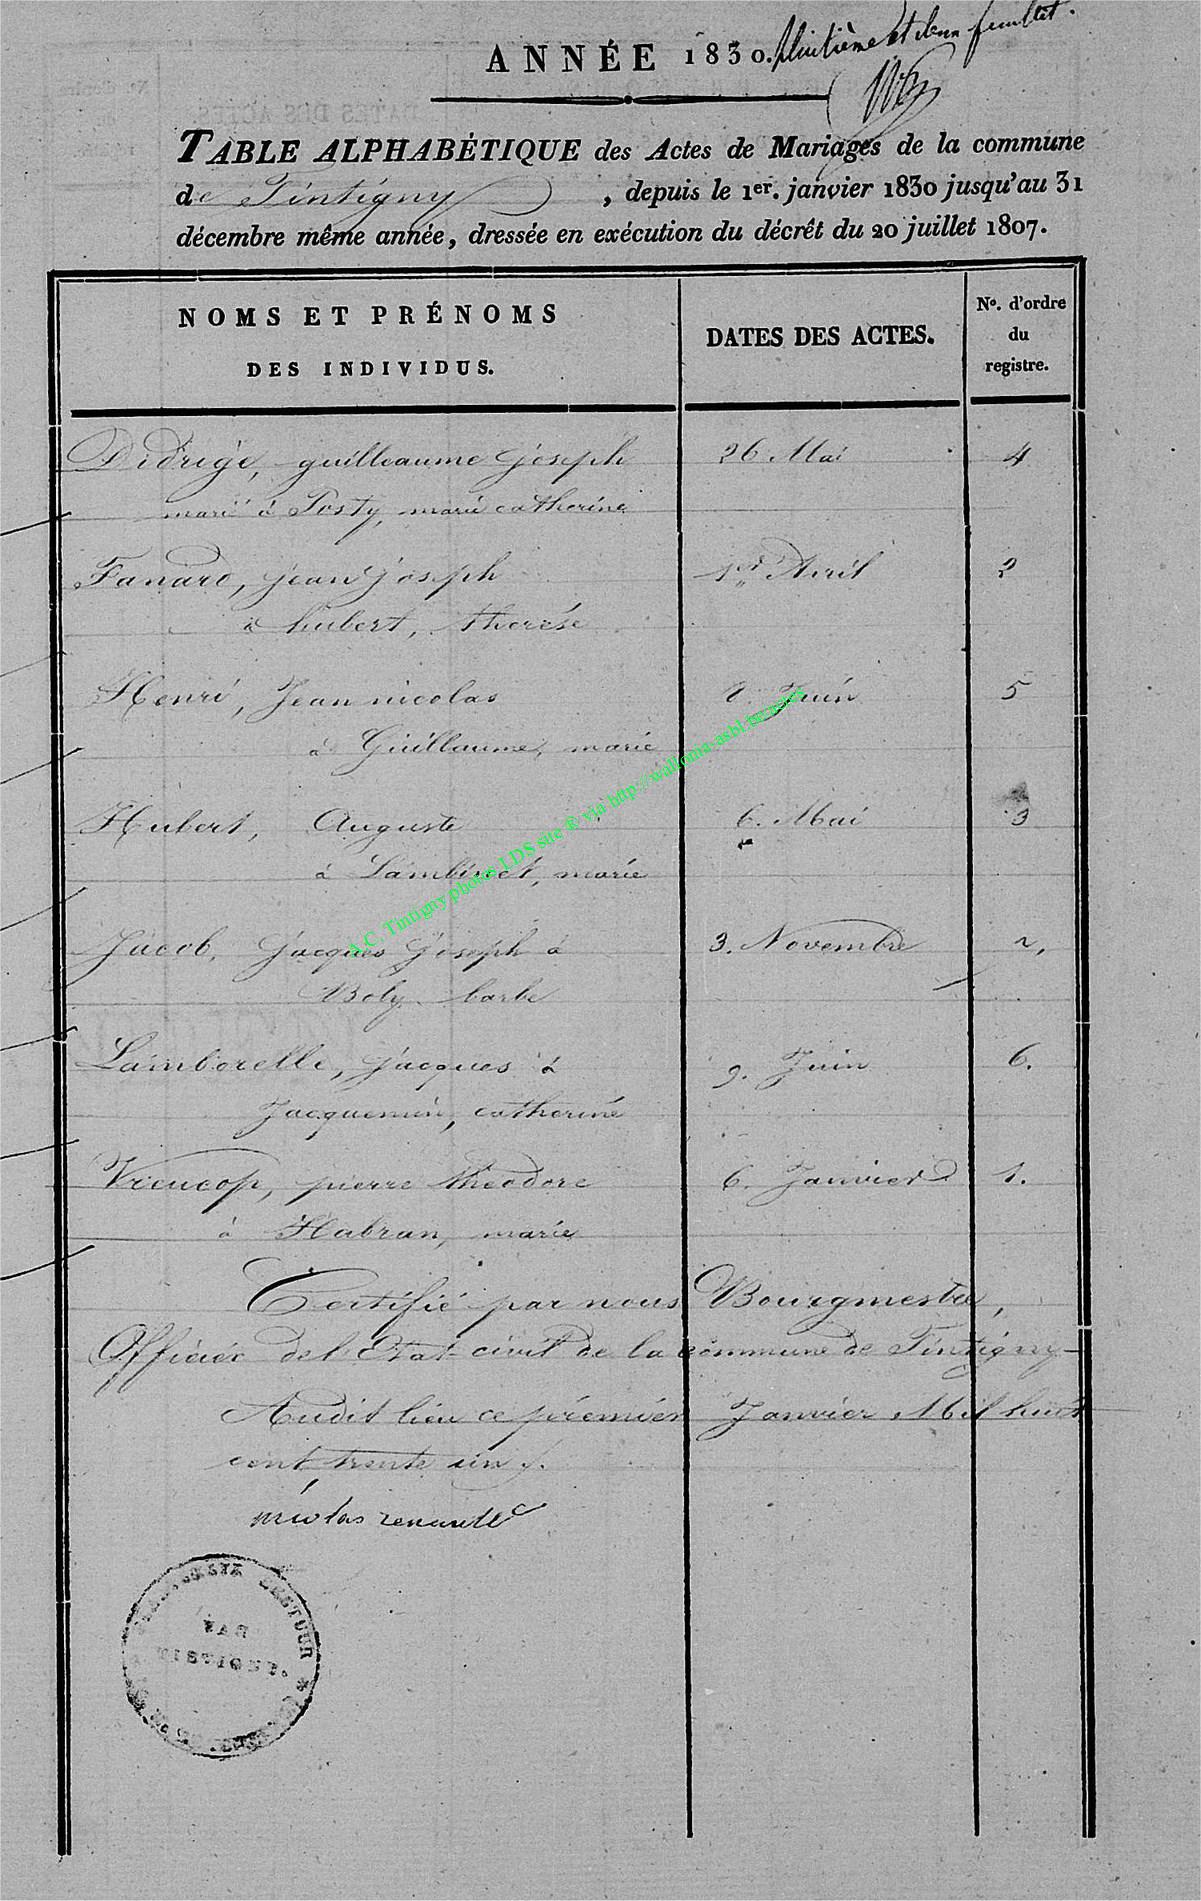 ANNÉE 1830. huitième et dern feuillet.
TABLE ALPHABÉTIQUE des Actes de Mariages de la commune
de Tintigny , depuis le 1er. janvier 1830 jusqu'au 31
décembre même année, dressée en exécution du décrêt du 20 juillet 1807.
NOMS ET PRÉNOMS
DES INDIVIDUS.
DATES DES ACTES.
No. d'ordre
du
registre.
Didrige, guillaume joseph 26 Mai 4
marié à Posty, marie catherine
Fanard, jean joseph 1er Avril 2
à hubert, therése
Henri, Jean nicolas 8. Juin 5
à Guillaume, marie
Hubert, Auguste 6. Mai 3
à Lambinet, marie
Jacob, jacques joseph à 3. Novembre
Boly barbe
Lamborelle, jacques à 9. Juin 6.
Jacquemin, catherine
pierre théodore 6. Janvier 1.
à Habran, marie
Certifié par nous Bourgmestre,
Officier del Etat civil de la commune de Tintigny
Audit lieu ce premier Janvier Mil huit
cent trente un
nicolas
A.C. Tintigny photos LDS site ® via http://wallonia-asbl.be